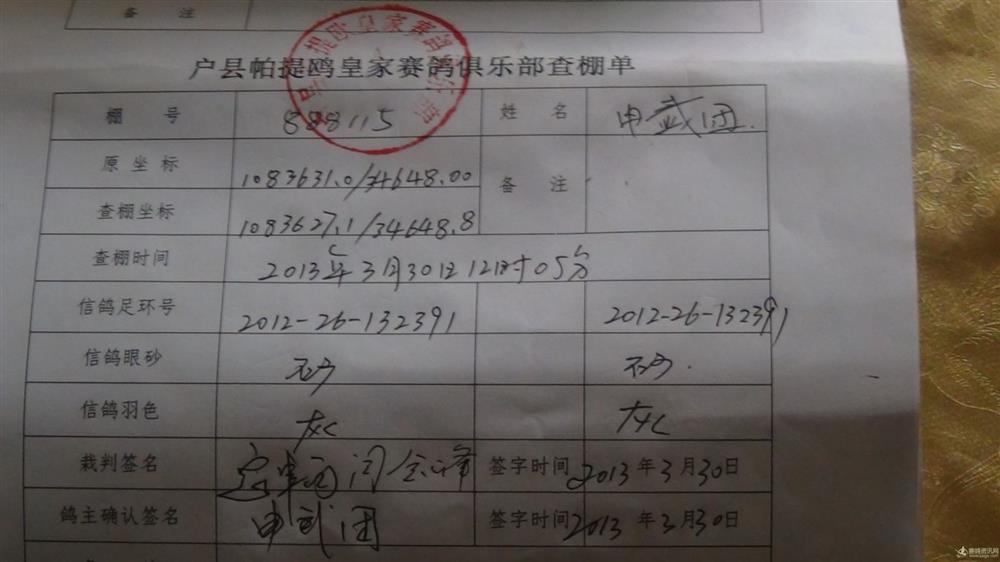 备 注
户县帕提鸥皇家赛鸽俱乐部查棚单
棚 号 888115 姓 名 申武团
原坐标 1083631.0/34648.00 备 注
查棚坐标 1083627.1/34648.8
查棚时间 2013年3月30日12时05分
信鸽足环号 2012-26-132391 2012-26-132391
信鸽眼砂 砂 砂
信鸽羽色 灰 灰
裁判签名 签字时间 2013年3月30日
鸽主确认签名 申武团 签字时间 2013年3月30日